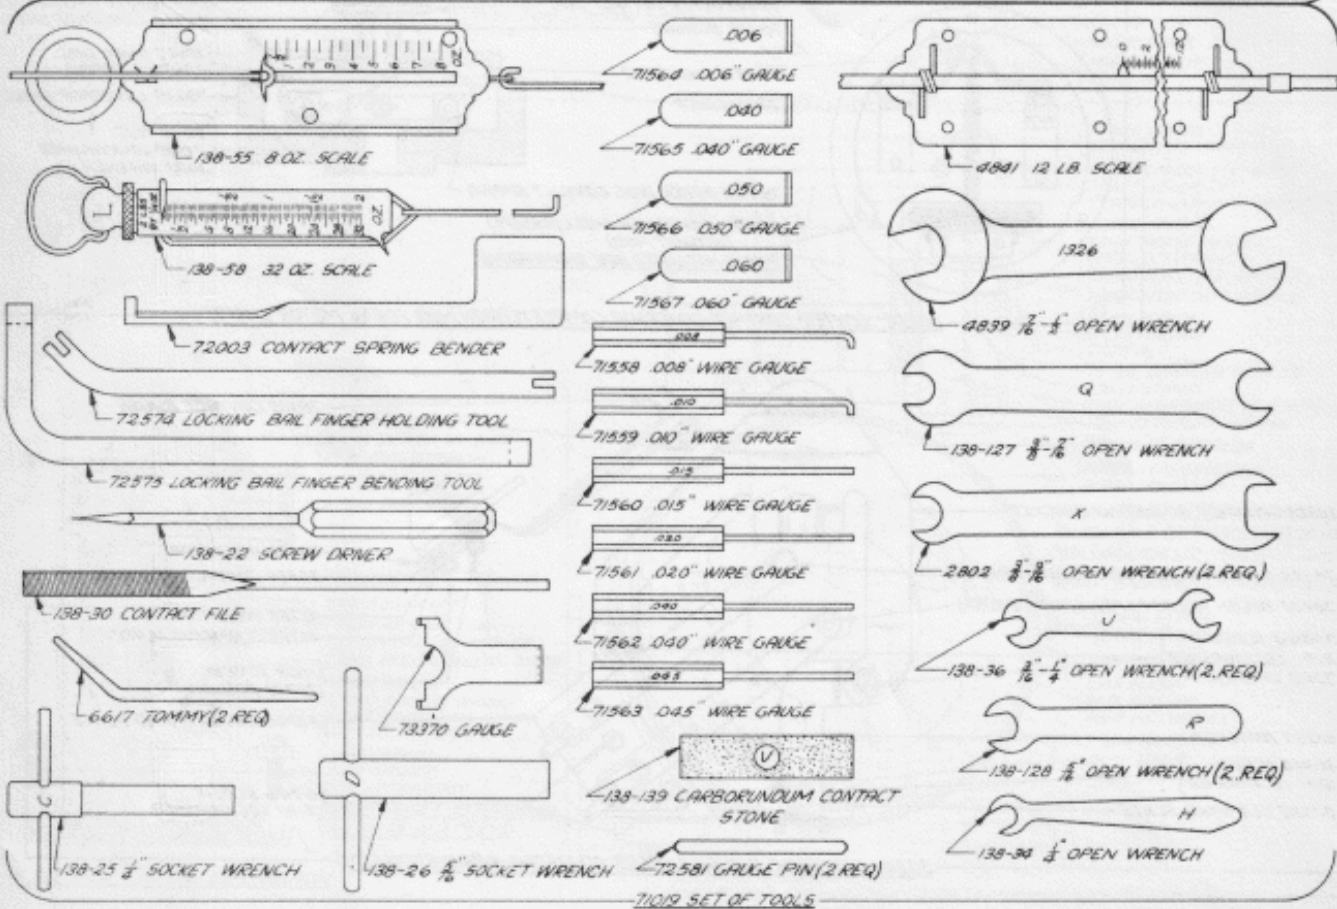 138-55 8 OZ. SCALE
138-58 32 OZ. SCALE
72003 CONTACT SPRING BENDER
72574 LOCKING BAIL FINGER HOLDING TOOL
72575 LOCKING BAIL FINGER BENDING TOOL
138-22 SCREW DRIVER
138-30 CONTACT FILE
6617 TOMMY (2 REQ)
73370 GAUGE
C
138-25 1/4" SOCKET WRENCH
138-26 5/16" SOCKET WRENCH
.006
71564 .006" GAUGE
.040
71565 .040" GAUGE
.050
71566 .050" GAUGE
.060
71567 .060" GAUGE
.008
71558 .008" WIRE GAUGE
.010
71559 .010" WIRE GAUGE
.015
71560 .015" WIRE GAUGE
.020
71561 .020" WIRE GAUGE
.040
71562 .040" WIRE GAUGE
.045
71563 .045" WIRE GAUGE
V
138-139 CARBORUNDUM CONTACT
STONE
72581 GAUGE PIN (2 REQ)
4841 12 LB. SCALE
1326
4839 7/16"-1/2" OPEN WRENCH
Q
138-127 3/8"-7/16" OPEN WRENCH
X
2802 OPEN WRENCH (2.REQ.)
U
138-36 3/16"-1/4" OPEN WRENCH (2.REQ)
R
138-128 5/16" OPEN WRENCH (2.REQ)
H
138-34 1/4" OPEN WRENCH
71019 SET OF TOOLS